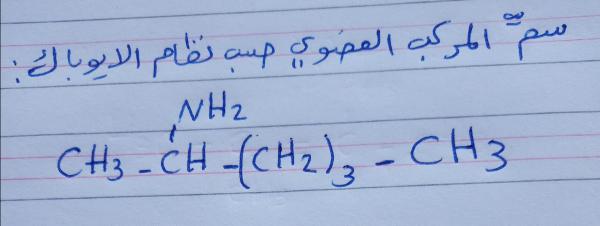 سمِّ المركب العضوي حسب نظام الايوباك:
NH2
CH3 - CH - (CH2)3 - CH3